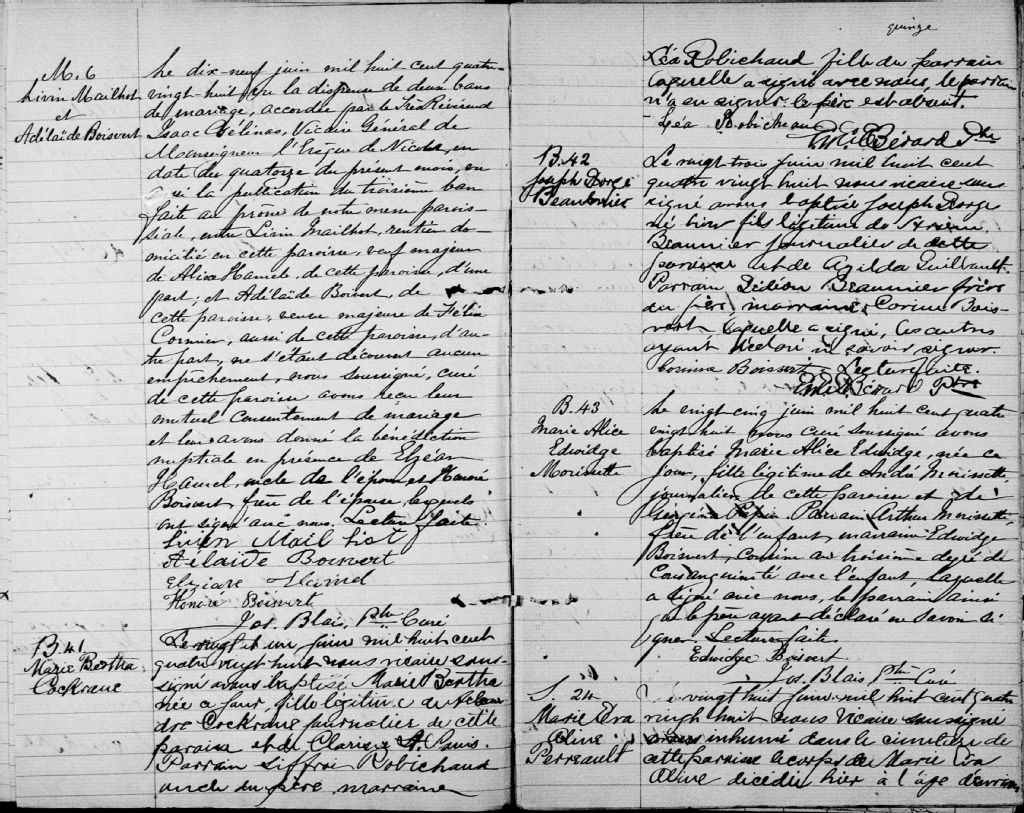 M. 6
Livin Mailhot
et
Adélaïde Boisvert
Le dix-neuf juin mil huit cent quatre
vingt-huit vu la dispense de deux bans
de mariage, accordée par le Très Révérend
Isaac Gélinas, Vicaire Général de
Monseigneur l'Evêque de Nicolet, en
date du quatorze du présent mois, en
la publication du troisième ban
faite au prône de notre messe parois-
siale, entre Livin Mailhot, rentier do-
micilié en cette paroisse, veuf majeur
de Alice Hamel, de cette paroisse, d'une
part; et Adélaïde Boisvert, de
cette paroisse, veuve majeure de Félix
Cormier, aussi de cette paroisse, d'au-
tre part, ne s'étant découvert aucun
empêchement, nous soussigné, curé
de cette paroisse avons reçu leur
mutuel consentement de mariage
et leur avons donné la bénédiction
nuptiale en présence de Elzéar
Hamel, oncle de l'époux et Honoré
Boisvert frère de l'épouse lesquels
ont signé avec nous. Lecture faite
Livin Mail hot
Adelaide Boisvert
Elzéare Hamel
Honoré Boisvert
Jos. Blais, Ptre Curé
B. 41
Marie Bertha
Cockrane
Le vingt et un juin mil huit cent
quatre vingt huit nous vicaire sous-
signé avons baptisé Marie Bertha
née ce jour, fille légitime de
dre Cockrane journalier de cette
paroisse et de Clarisse St Louis.
Parrain Siffroi Robichaud
oncle du père marraine
quinze
Léa Robichaud fille du parrain
laquelle a signé avec nous, le parrain
n'a su signer le père est absent.
Léa Robichaud
Bérard Ptre
B. 42
Joseph George
Beaumier
Le vingt trois juin mil huit cent
quatre vingt huit nous vicaire sous
signé avons baptisé Joseph George
né hier fils légitime de
Beaumier journalier de cette
paroisse et de Azilda Guilbault.
Parrain Beaumier frère
du père, marraine Corinne Bois-
vert laquelle a signé, les autres
ayant déclaré ne savoir signer.
Corinne Boisvert Lecture faite.
Bérard Ptre
B. 43
Marie Alice
Edwidge
Morissette
Le vingt cinq juin mil huit cent quatre
vingt huit nous curé soussigné avons
baptisé Marie Alice Edwidge, née ce
jour, fille légitime de André Morissette
journalier de cette paroisse et de
Georgina Pépin Parrain Arthur Morissette,
frère de l'enfant, marraine Edwidge
Boisvert, cousine au troisième degré de
Consanguinité avec l'enfant, laquelle
a signé avec nous, le parrain ainsi
que le père ayant déclaré ne savoir si-
gner. Lecture faite
Edwidge Boisvert
Jos. Blais Ptre Curé
S. 24
Marie Eva
Oline
Perreault
Le vingt huit juin mil huit cent quatre
vingt huit nous Vicaire soussigné
avons inhumé dans le cimetière de
cette paroisse le corps de Marie Eva
Oline décédée hier à l'âge d'environ